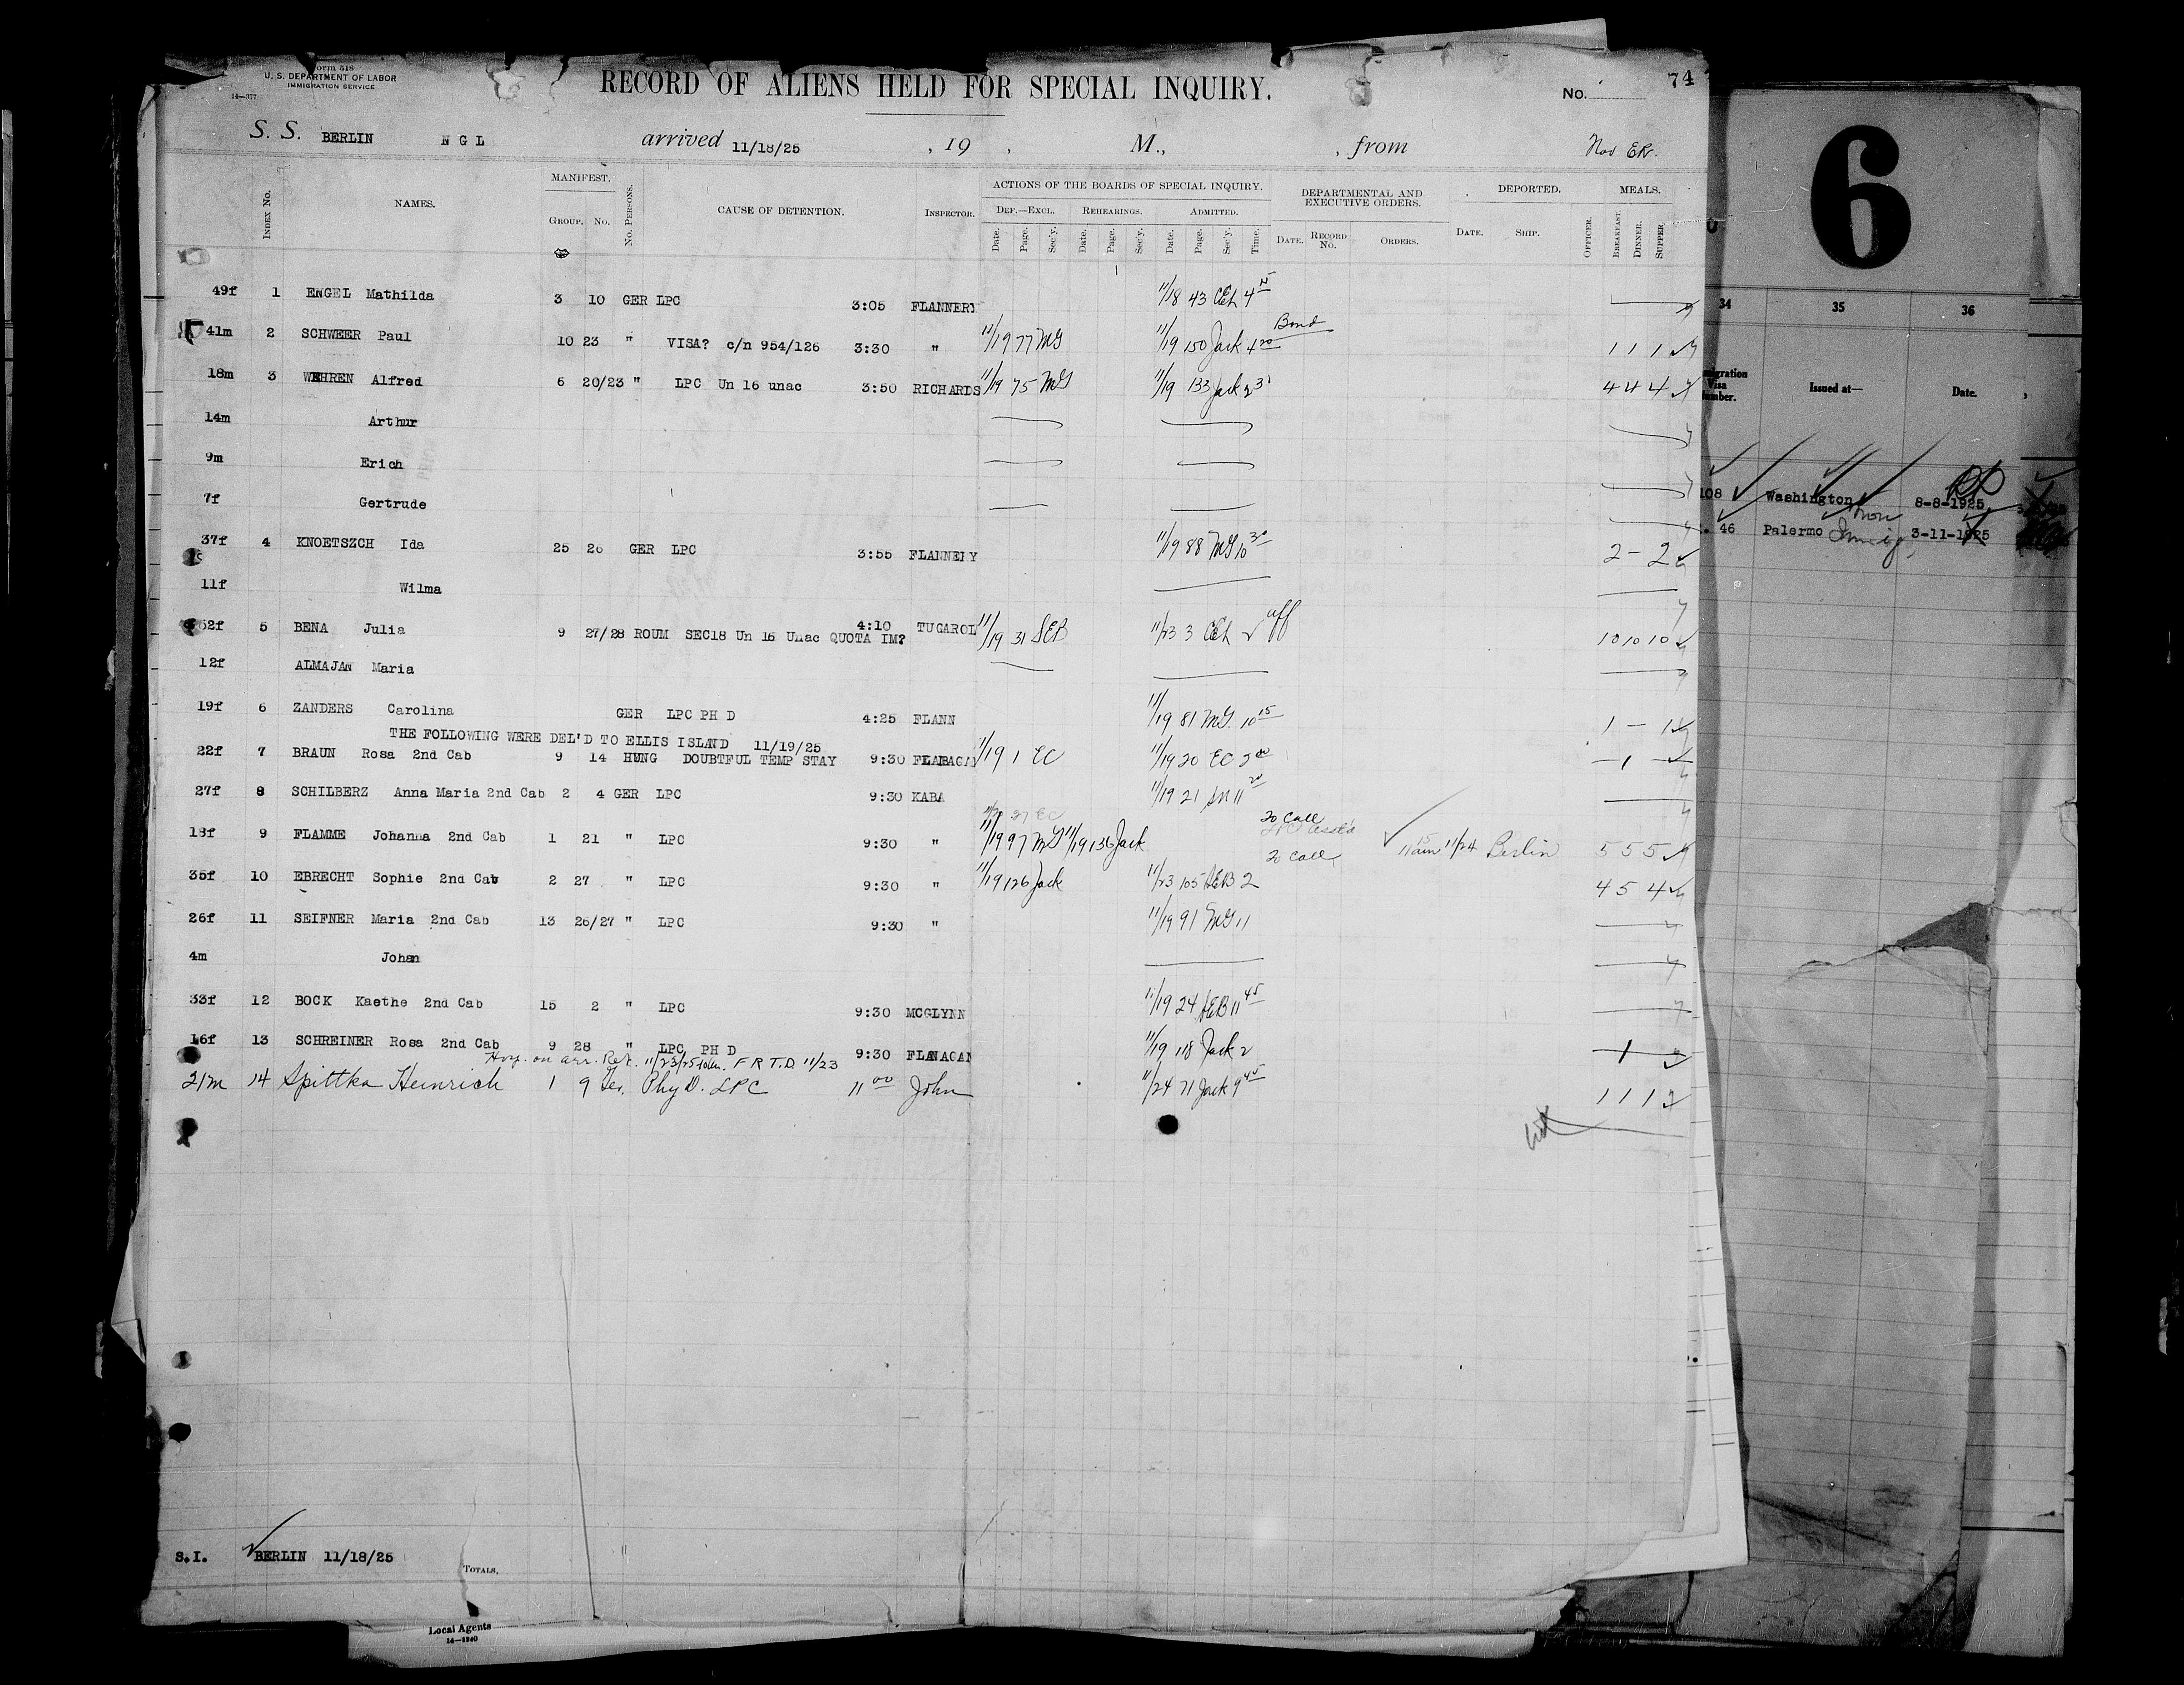 Form 518
U. S. DEPARTMENT OF LABOR
IMMIGRATION SERVICE
14—377
RECORD OF ALIENS HELD FOR SPECIAL INQUIRY.
No.
74
S. S. BERLIN N G L arrived 11/18/25 , 19 , M., , from Nov ER.
INDEX No. NAMES. MANIFEST. GROUP. No. No. PERSONS. CAUSE OF DETENTION. INSPECTOR. ACTIONS OF THE BOARDS OF SPECIAL INQUIRY. DEPARTMENTAL AND EXECUTIVE ORDERS. DEPORTED. OFFICER. MEALS.
DEF.—EXCL. REHEARINGS. ADMITTED.
Date. Page. Sec'y. Date. Page. Sec'y. Date. Page. Sec'y. Time. DATE. RECORD No. ORDERS. DATE. SHIP. BREAKFAST. DINNER. SUPPER.
49f 1 ENGEL Mathilda 3 10 GER LPC 3:05 FLANNERY 11/18 43 CEh 4 15
41m 2 SCHWEER Paul 10 23 " VISA? c/n 954/126 3:30 " 11/19 77 MG 11/19 150 Jack 4 20 Bond 1 1 1
18m 3 WEHREN Alfred 6 20/23 " LPC Un 16 unac 3:50 RICHARDS 11/19 75 MG 11/19 133 Jack 4 4 4
14m Arthur
9m Erich
7f Gertrude
37f 4 KNOETSZCH Ida 25 26 GER LPC 3:55 FLANNERY 11/19 88 MG 10 30 2 – 2
11f Wilma
52f 5 BENA Julia 9 27/28 ROUM SEC18 Un 16 Unac QUOTA IM? 4:10 TUGAROL 11/19 31 SEB 11/23 3 CEh aff 10 10 10
12f ALMAJAN Maria
19f 6 ZANDERS Carolina GER LPC PH D 4:25 FLANN 11/19 81 MG. 10 15 1 – 1
THE FOLLOWING WERE DEL'D TO ELLIS ISLAND 11/19/25
22f 7 BRAUN Rosa 2nd Cab 9 14 HUNG DOUBTFUL TEMP STAY 9:30 11/19 1 EC 11/19 20 EC – 1 –
27f 8 SCHILBERZ Anna Maria 2nd Cab 2 4 GER LPC 9:30 KABA 11/19 21 11 20
18f 9 FLAMME Johanna 2nd Cab 1 21 " LPC 9:30 " 11/20 27 EC 11/19 97 MG 11/19 136 Jack 20 Call 20 Call 11 15 am 11/24 Berlin 5 5 5
35f 10 EBRECHT Sophie 2nd Cab 2 27 " LPC 9:30 " 11/19 126 Jack 11/23 105 SEB 2 4 5 4
26f 11 SEIFNER Maria 2nd Cab 13 26/27 " LPC 9:30 " 11/19 91 MG 11
4m Johan
33f 12 BOCK Kaethe 2nd Cab 15 2 " LPC 9:30 MCGLYNN 11/19 24 SEB 11 45
16f 13 SCHREINER Rosa 2nd Cab 9 28 " LPC PH D 9:30 FLANAGAN 11/19 118 Jack 2 – 1
Hosp. on arr. 11/23/25 F R T.D. 11/23
21m 14 Spittka Heinrich 1 9 Ger. Phy D. LPC 11 00 John 11/24 71 Jack 9 45 1 1 1
S.I. BERLIN 11/18/25
TOTALS,
Local Agents
14—1240
6
34 35 36
Immigration Visa Number. Issued at— Date.
108 Washington 8-8-1925
46 Palermo 3-11-1925